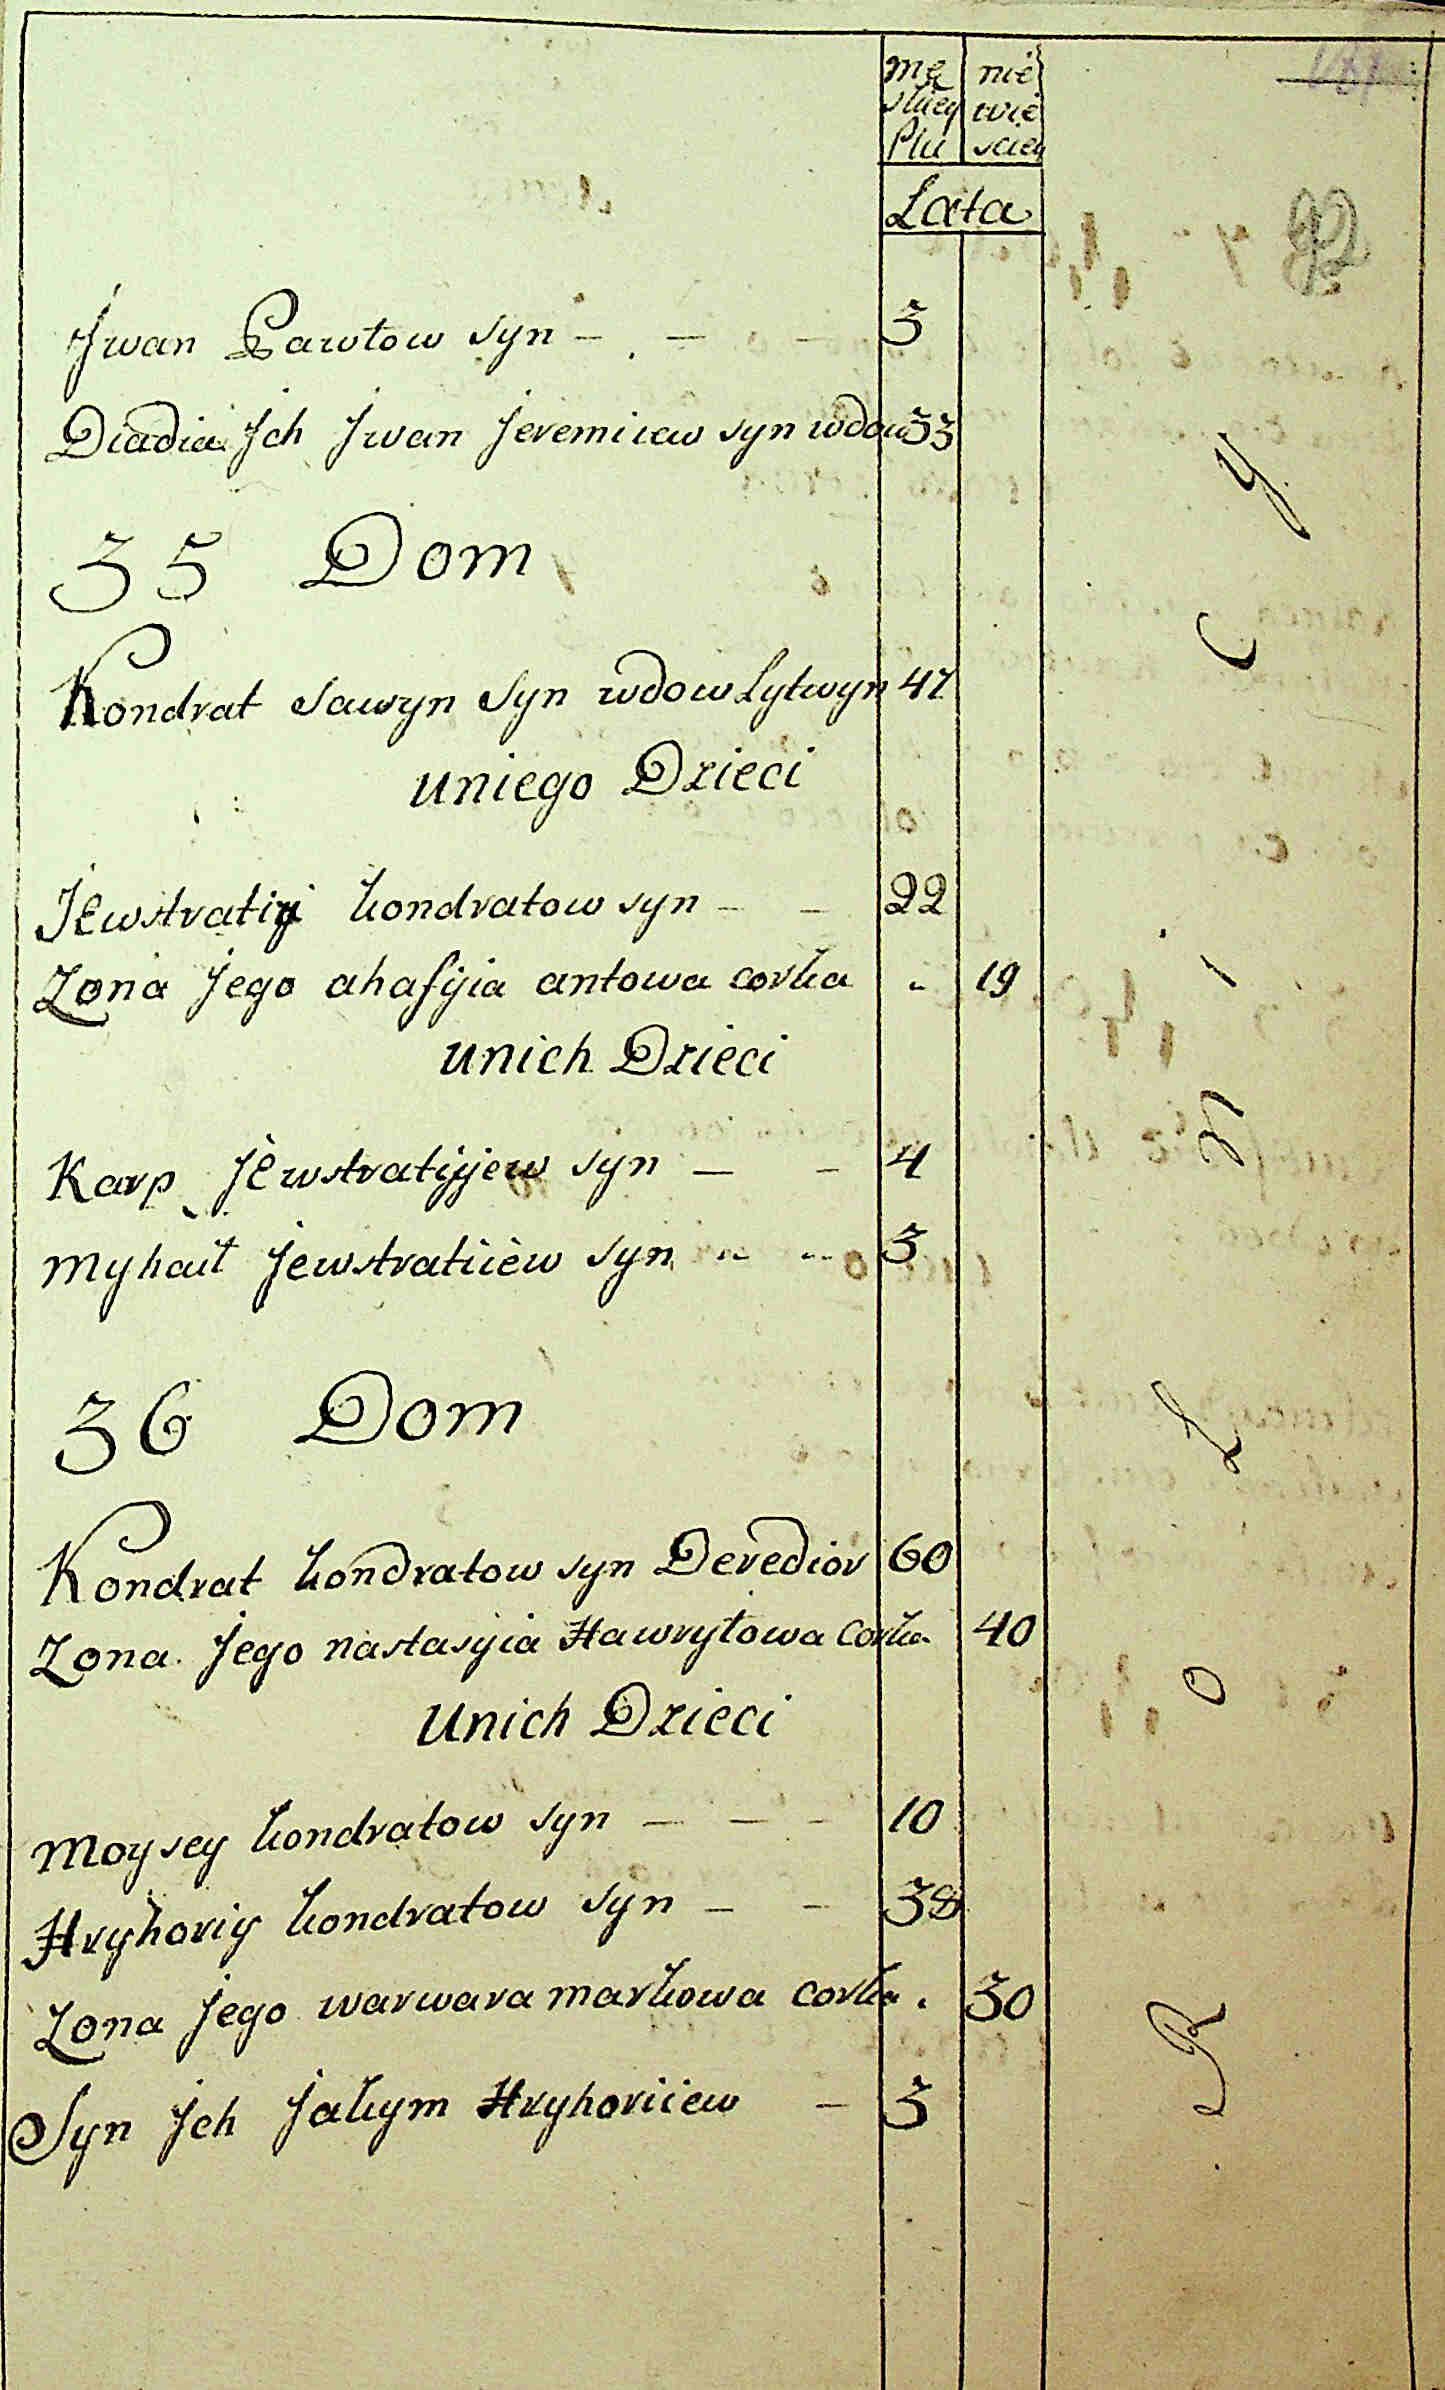 mę nie
skiey wie
Płu sciey
Lata
92
Jwan Pawłow syn 3
Diadia Jch Jwan Jeremiiew syn wdow 33
35 Dom
Kondrat Sawyn Syn wdow Lytwyn 47
uniego Dzieci
Jewstratiy kondratow syn 22
Zona Jego ahafijia antowa corka 19
unich Dzieci
Karp Jewstratijjew syn 4
Myhaił Jewstratiiew syn 3
36 Dom
Kondrat kondratow syn Deredior 60
Zona Jego nastasyia Hawryłowa Corka 40
Unich Dzieci
Moysey kondratow syn 10
Hryhoriy kondratow syn 38
Zona Jego warwara markowa corka 30
Syn Jch Jakym Hryhoriiew 3
R o l n i c y